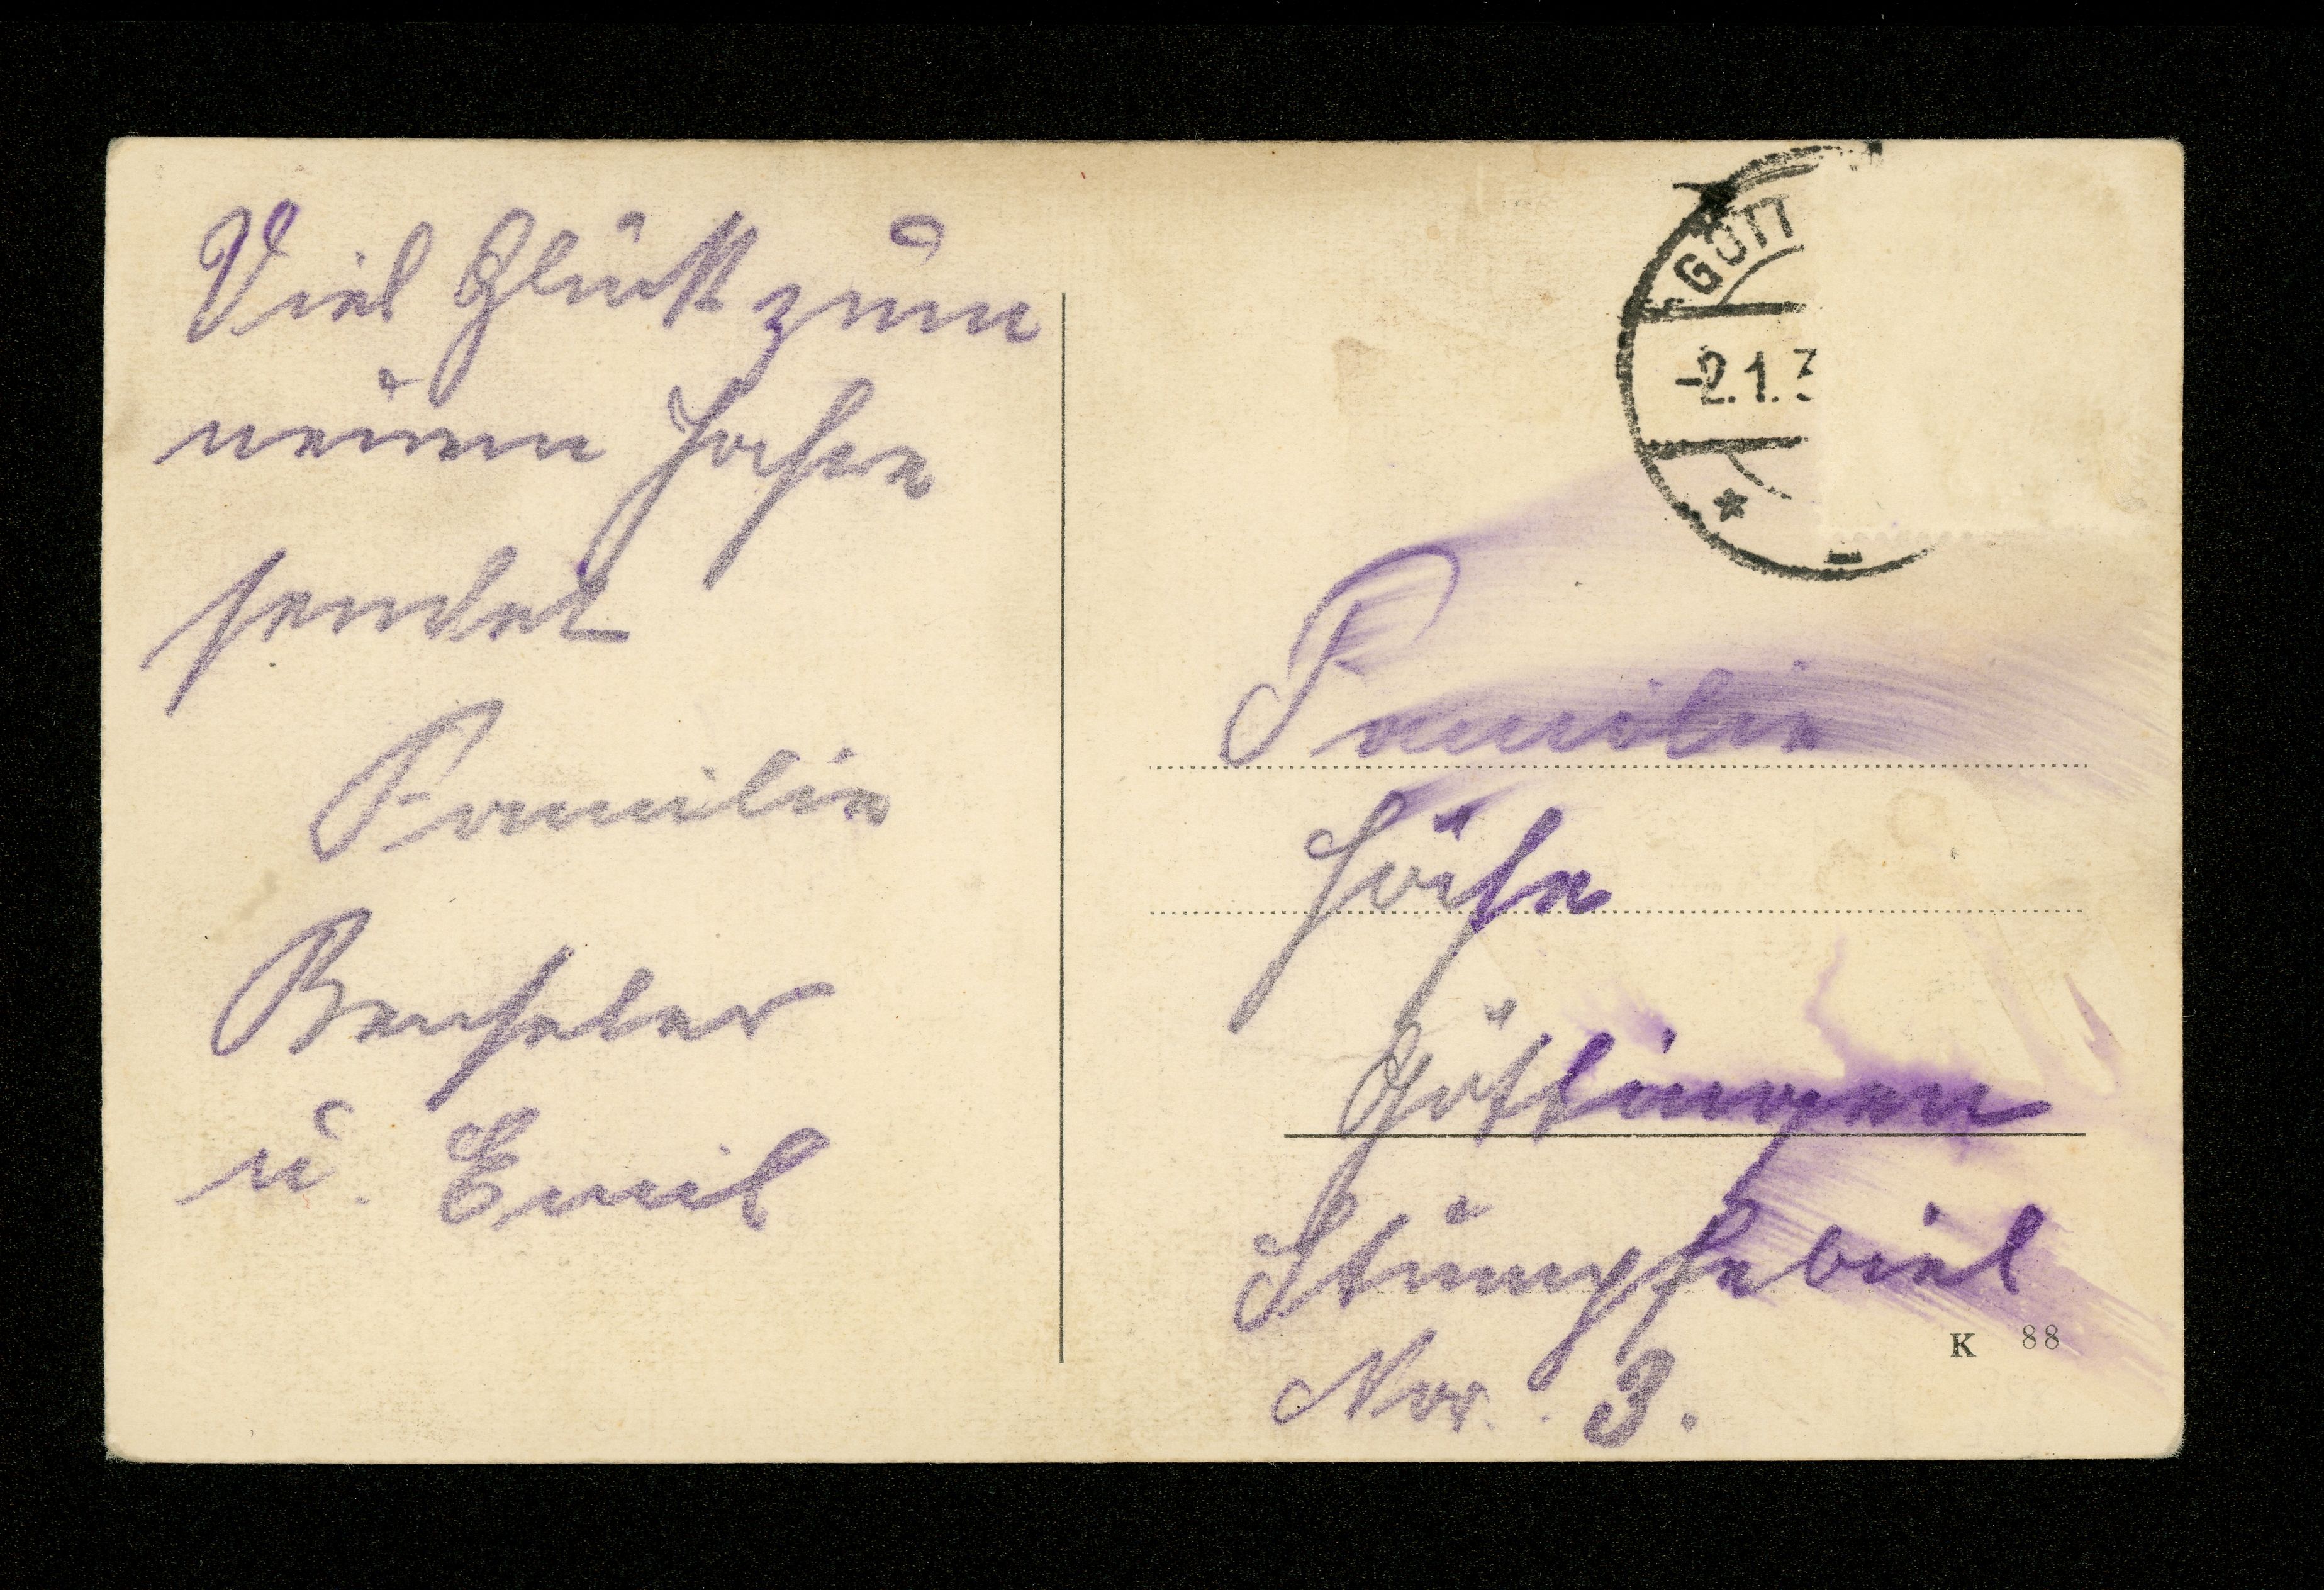 Viel Glück zum
neuen Jahre
sendet
Familie
u. Emil
GÖTT
-2.1.3
Familie
Göttingen
Stumpfebiel
Nor. 3.
K 88